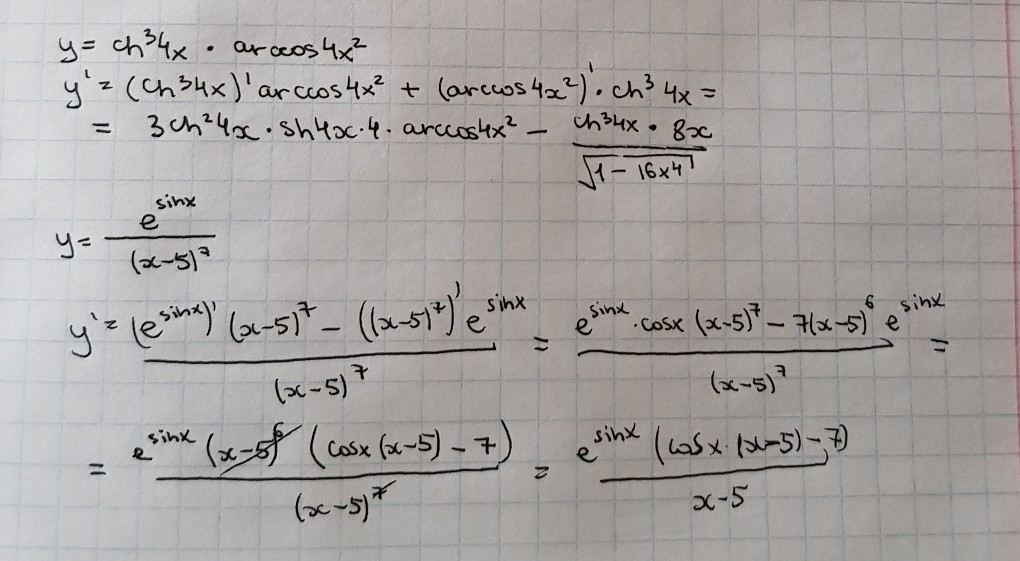 y = ch³4x · arccos4x²
y' = (ch³4x)' arccos4x² + (arccos4x²)' · ch³ 4x =
= 3ch²4x · sh4x·4 · arccos4x² − (ch³4x · 8x)/√(1 − 16x⁴)
y = e^(sinx)/(x−5)⁷
y' = ((e^(sinx))' (x−5)⁷ − ((x−5)⁷)' e^(sinx))/(x−5)⁷ = (e^(sinx) · cosx (x−5)⁷ − 7(x−5)⁶ e^(sinx))/(x−5)⁷ =
= (e^(sinx) (x−5)⁶ (cosx (x−5) − 7))/(x−5)⁷ = (e^(sinx) (cosx · (x−5) − 7))/(x−5)